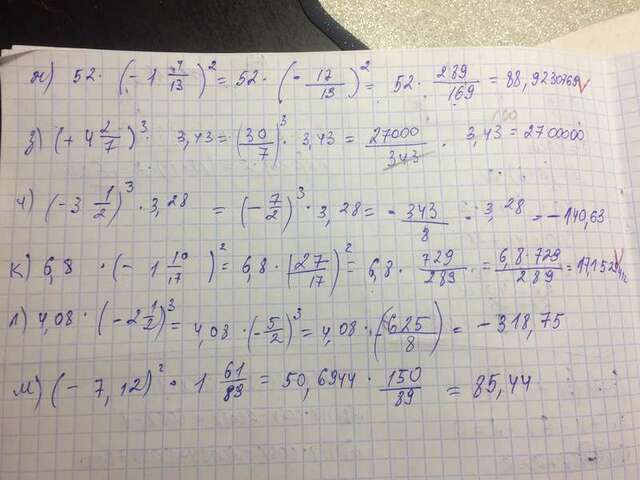 ж) 52 · (-1 4/13)² = 52 · (-17/13)² = 52 · 289/169 = 88,9230769
з) (+4 2/7)³ · 3,43 = (30/7)³ · 3,43 = 27000/343 · 3,43 = 2700000
и) (-3 1/2)³ · 3,28 = (-7/2)³ · 3,28 = -343/8 · 3,28 = -140,63
к) 6,8 · (-1 10/17)² = 68 · (27/17)² = 6,8 · 729/289 = 6,8 729/289 = 17,1529
л) 4,08 · (-2 1/2)³ = 4,08 · (-5/2)³ = 4,08 · (625/8) = -318,75
м) (-7,12)² · 1 61/89 = 50,6944 · 150/89 = 85,44